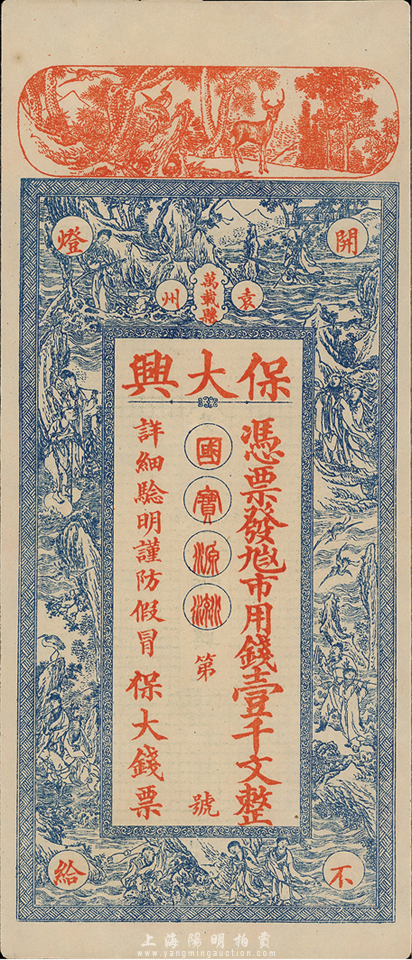 開燈不給
袁州
萬載縣
保大興
憑票發兌市用錢壹千文整
國寶源流
第 號
詳細驗明謹防假冒 保大錢票
上海陽明拍賣
www.yangmingauction.com